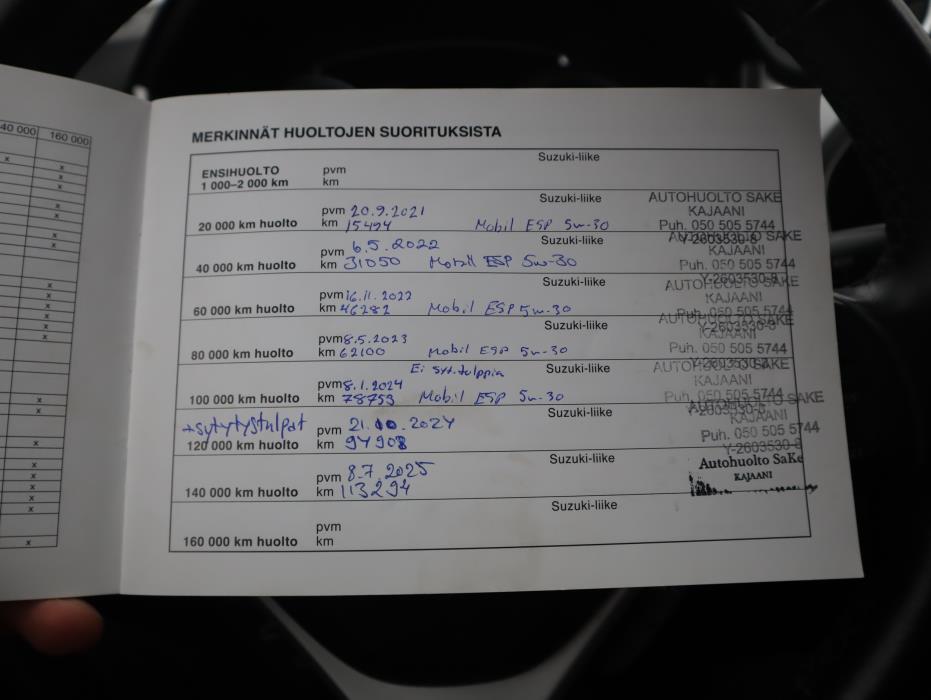 40 000 160 000
MERKINNÄT HUOLTOJEN SUORITUKSISTA
ENSIHUOLTO pvm Suzuki-liike
1 000–2 000 km km
pvm 20.9.2021 Suzuki-liike AUTOHUOLTO SAKE
KAJAANI
20 000 km huolto km 15494 Mobil ESP 5w-30 Puh. 050 505 5744
Y-2603530-8
pvm 6.5.2022 Suzuki-liike AUTOHUOLTO SAKE
KAJAANI
40 000 km huolto km 31050 Mobil ESP 5w-30 Puh. 050 505 5744
Y-2603530-8
pvm 16.11.2022 Suzuki-liike AUTOHUOLTO SAKE
KAJAANI
60 000 km huolto km 46282 Mobil ESP 5w-30 Puh. 050 505 5744
Y-2603530-8
pvm 8.5.2023 Suzuki-liike AUTOHUOLTO SAKE
KAJAANI
80 000 km huolto km 62100 Mobil ESP 5w-30 Puh. 050 505 5744
Ei syt.tulppia
pvm 8.1.2024 Suzuki-liike AUTOHUOLTO SAKE
KAJAANI
100 000 km huolto km 78753 Mobil ESP 5w-30 Puh. 050 505 5744
Y-2603530-8
+sytytystulpat pvm 21.10.2024 Suzuki-liike AUTOHUOLTO SAKE
KAJAANI
120 000 km huolto km 94908 Puh. 050 505 5744
Y-2603530-8
pvm 8.7.2025 Suzuki-liike Autohuolto SaKe
KAJAANI
140 000 km huolto km 113294
pvm Suzuki-liike
160 000 km huolto km